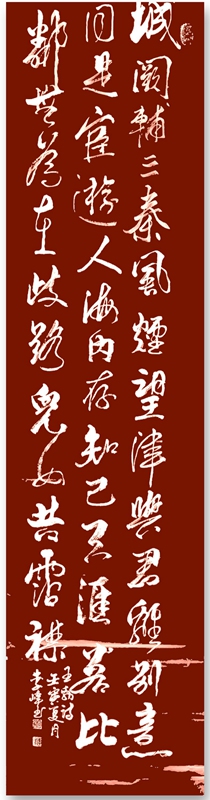 城闕輔三秦風煙望津與君離別意
同是宦遊人海内存知己天涯若比
鄰無為在歧路兒女共霑襟
王勃詩
壬寅夏月
李峰書